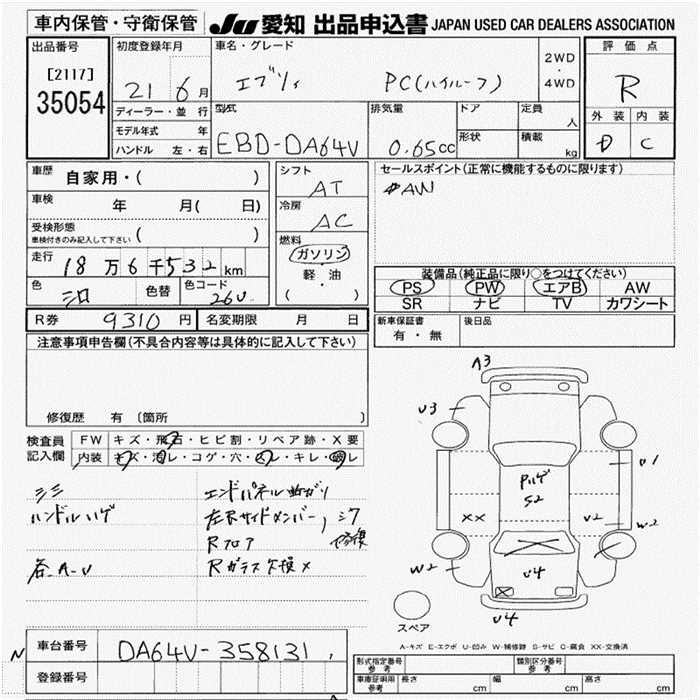 車内保管・守衛保管
JU 愛知 出品申込書 JAPAN USED CAR DEALERS ASSOCIATION
出品番号
[2117]
35054
初度登録年月
21 6月
ディーラー・並行
モデル年式 年
ハンドル 左・右
車名・グレード
エブリィ PC(ハイルーフ)
2WD
・
4WD
型式
EBD-DA64V
排気量
0.65cc
ドア
形状
定員
人
積載
kg
評価点
R
外装 内装
D C
車歴
自家用・( )
車検
年 月( 日)
受検形態
車検付きのみ記入して下さい ( )
走行
18万6千532km
色
シロ
色替
色コード
26U
シフト
AT
冷房
AC
燃料
ガソリン
軽・油
( )
セールスポイント(正常に機能するものに限ります)
AW
装備品(純正品に限り○をつけてください)
PS PW エアB AW
SR ナビ TV カワシート
R券 9310円 名変期限 月 日
新車保証書
有・無
後日品
注意事項申告欄(不具合内容等は具体的に記入して下さい)
修復歴 有 〔箇所 〕
検査員
記入欄
FW キズ・飛石・ヒビ割・リペア跡・X要
内装 キズ・汚レ・コゲ・穴・スレ・キレ・破レ
シミ
ハンドルハゲ
各A-U
エンドパネル曲がり
左右サイドメンバー, シク
Rフロア 修復
Rガラス欠損×
A3
U3
U1
Pハゲ
S2
XX
U2
W2
W2
U4
U4
スペア
A-キズ E-エクボ U-凹み W-補修跡 S-サビ C-腐食 XX-交換済
N
車台番号
DA64V-358131
登録番号
形式指定番号
参考
類別区分番号
参考
車庫証明用
参考
長さ cm
幅 cm
高さ cm